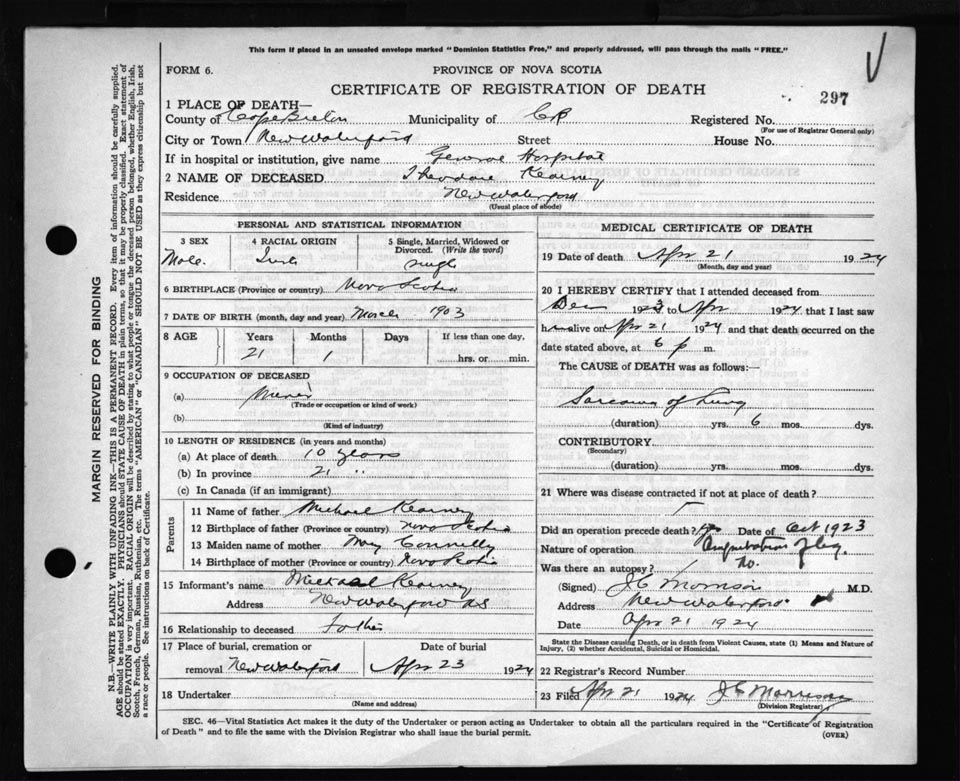 This form if placed in an unsealed envelope marked "Dominion Statistics Free," and properly addressed, will pass through the mails "FREE."
FORM 6.
PROVINCE OF NOVA SCOTIA
CERTIFICATE OF REGISTRATION OF DEATH
297
1 PLACE OF DEATH—
County of Cape Breton Municipality of CB Registered No.
(For use of Registrar General only)
City or Town New Waterford Street House No.
If in hospital or institution, give name General Hospital
2 NAME OF DECEASED Theodore Kearney
Residence New Waterford
(Usual place of abode)
PERSONAL AND STATISTICAL INFORMATION
3 SEX
Male.
4 RACIAL ORIGIN
Irish
5 Single, Married, Widowed or Divorced. (Write the word)
single
6 BIRTHPLACE (Province or country) Nova Scotia
7 DATE OF BIRTH (month, day and year) March 1903
8 AGE Years Months Days If less than one day,
21 1 hrs. or min.
9 OCCUPATION OF DECEASED
(a) Miner
(Trade or occupation or kind of work)
(b)
(Kind of industry)
10 LENGTH OF RESIDENCE (in years and months)
(a) At place of death 10 years
(b) In province 21 "
(c) In Canada (if an immigrant)
Parents
11 Name of father Michael Kearney
12 Birthplace of father (Province or country) Nova Scotia
13 Maiden name of mother Mary Connelly
14 Birthplace of mother (Province or country) Nova Scotia
15 Informant's name Michael Kearney
Address New Waterford NS
16 Relationship to deceased Father
17 Place of burial, cremation or Date of burial
removal New Waterford Apr 23 1924
18 Undertaker
(Name and address)
MEDICAL CERTIFICATE OF DEATH
19 Date of death Apr 21 1924
(Month, day and year)
20 I HEREBY CERTIFY that I attended deceased from
Dec 1923 to Apr 1924 that I last saw
him alive on Apr 21 1924 and that death occurred on
date stated above, at 6 p m.
The CAUSE of DEATH was as follows:
Sarcoma of Lung
(duration) yrs. 6 mos. dys.
CONTRIBUTORY
(Secondary)
(duration) yrs. mos. dys.
21 Where was disease contracted if not at place of death?
Did an operation precede death? Date of Oct 1923
Nature of operation Amputation of leg.
Was there an autopsy? No.
(Signed) J C Morrison M.D.
Address New Waterford
Date Apr 21 1924
State the Disease causing Death, or in death from Violent Causes, state (1) Means and Nature of Injury, (2) whether Accidental, Suicidal or Homicidal.
22 Registrar's Record Number
23 Filed Apr 21 1924 J C Morrison
(Division Registrar)
SEC. 46—Vital Statistics Act makes it the duty of the Undertaker or person acting as Undertaker to obtain all the particulars required in the "Certificate of Registration
of Death" and to file the same with the Division Registrar who shall issue the burial permit. (OVER)
MARGIN RESERVED FOR BINDING
N.B.—WRITE PLAINLY WITH UNFADING INK—THIS IS A PERMANENT RECORD. Every item of information should be carefully supplied.
AGE should be stated EXACTLY. PHYSICIANS should STATE CAUSE OF DEATH in plain terms, so that it may be properly classified. Exact statement of
OCCUPATION is very important. RACIAL ORIGIN will be described by stating to what people or tongue the deceased person belonged, whether English, Irish,
Scotch, French, German, Russian, Ruthenian, etc. The terms "AMERICAN" or "CANADIAN" SHOULD NOT BE USED as they express citizenship but not
a race or people. See instructions on back of Certificate.